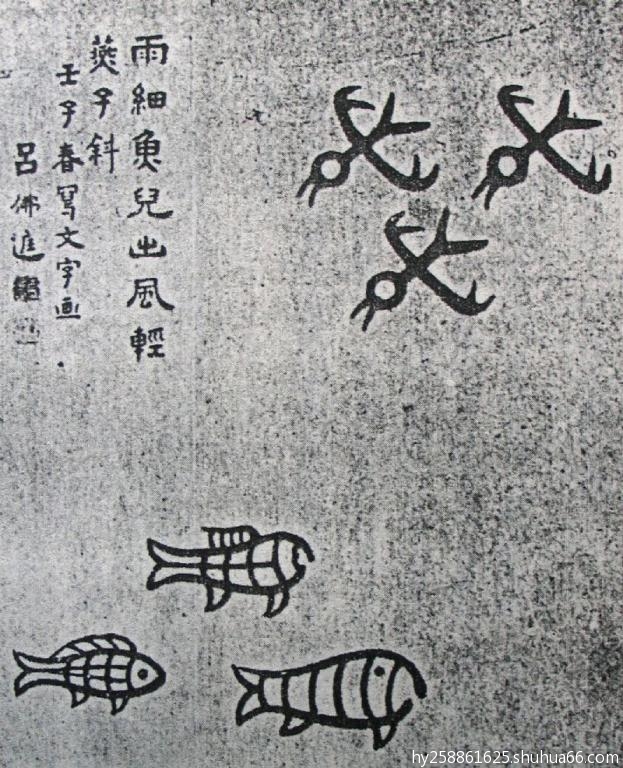 雨細魚兒出風輕
燕子斜
壬子春寫文字画
呂佛遮
hy258861625.shuhua66.com